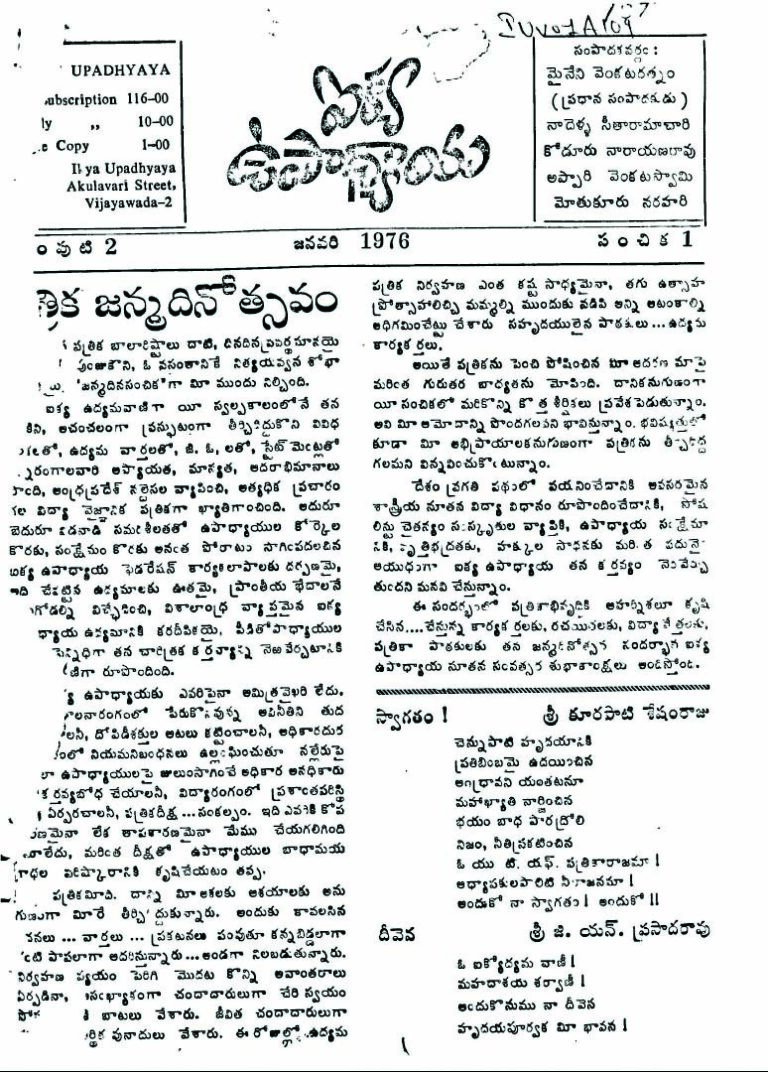 UPADHYAYA
ubscription 116-00
ly ,, 10-00
e Copy 1-00
Ikya Upadhyaya
Akulavari Street,
Vijayawada-2
ఐక్య
ఉపాధ్యాయ
సంపాదకవర్గం :
మైనేని వెంకటరత్నం
( ప్రధాన సంపాదకుడు )
నాదెళ్ళ సీతారామాచారి
కోడూరు నారాయణరావు
అప్పారి వెంకటస్వామి
మోతుకూరు నరహరి
ంపుటి 2
జనవరి 1976
సంచిక 1
త్రిక జన్మదినోత్సవం
పత్రిక బాలారిష్టాలు దాటి, దినదిన ప్రవర్థమానమై
పుంజుకొని, ఓ వసంతానికే నిత్యయవ్వన శోభా
"జన్మదినసంచిక"గా మీ ముందు నిల్చింది.
ఐక్య ఉద్యమవాణిగా యీ స్వల్పకాలంలోనే తన
కిని, అచంచలంగా ప్రస్ఫుటంగా తీర్చిదిద్దుకొని వివిధ
లతో, ఉద్యమ వార్తలతో, జి. ఓ. లతో, స్టేట్ మెంట్లతో
రంగాలవారి ఆప్యాయత, మాన్యత, ఆదరాభిమానాలు
పొంది, ఆంధ్రప్రదేశ్ నల్దెసల వ్యాపించి, అత్యధిక ప్రచారం
గల విద్యా వైజ్ఞానిక పత్రికగా ఖ్యాతిగాంచింది. అదురూ
బెదురూ కడనాడి సమరశీలతతో ఉపాధ్యాయుల కోర్కెల
కొరకు, సంక్షేమం కొరకు అనంత పోరాటం సాగింపదలచిన
ఐక్య ఉపాధ్యాయ ఫెడరేషన్ కార్యకలాపాలకు దర్పణమై,
ఇది చేపట్టిన ఉద్యమాలకు ఊతమై, ప్రాంతీయ భేదాలనే
గోడల్ని విచ్ఛేదించి, విశాలాంధ్ర వ్యాప్తమైన ఐక్య
ధ్యాయ ఉద్యమానికి కరదీపికయై, పీడితోపాధ్యాయుల
పెన్నిధిగా తన చారిత్రక కర్తవ్యాన్ని నెఱవేర్చటానికి
ణిగా రూపొందింది.
్య ఉపాధ్యాయకు ఎవరిపైనా అమిత్రవైఖరి లేదు.
లనారంగంలో పేరుకొనివున్న అవినీతిని తుద
లనీ, దోపిడీశక్తుల ఆటలు కట్టించాలనీ, అధికారదుర
ంలో నియమనిబంధనలు ఉల్లంఘించుతూ నల్లేరుపై
లా ఉపాధ్యాయులపై జులుంసాగించే అధికార అనధికారు
కర్తవ్యబోధ చేయాలనీ, విద్యారంగంలో ప్రశాంతపరిస్థి
ఏర్పరచాలనీ, పత్రికదీక్ష ... సంకల్పం. ఇది ఎవరికి కోప
ణమైనా లేక తాపకారణమైనా మేము చేయగలిగింది
లేదు, మరింత దీక్షతో ఉపాధ్యాయుల బాధామయ
గాధల పరిష్కారానికి కృషిచేయటం తప్ప.
పత్రికమీది. దాన్ని మీ ఆశలకు ఆశయాలకు అను
గుణంగా మీరే తీర్చిదిద్దుకున్నారు. అందుకు కావలసిన
చనలు ... వార్తలు ... ప్రకటనలు పంపుతూ కన్నబిడ్డలాగా
ంటి పాపలాగా ఆదరిస్తున్నారు ... అండగా నిలబడుతున్నారు.
నిర్వహణ వ్యయం పెరిగి మొదట కొన్ని అవాంతరాలు
ఏర్పడినా, సంఖ్యాకంగా చందాదారులుగా చేరి స్వయం
బాటలు వేశారు. జీవిత చందాదారులుగా
ర్థిక పునాదులు వేశారు. ఈ రోజుల్లో ఉద్యమ
పత్రిక నిర్వహణ ఎంత కష్ట సాధ్యమైనా, తగు ఉత్సాహ
ప్రోత్సాహాలిచ్చి మమ్మల్ని ముందుకు నడిపి అన్ని ఆటంకాల్ని
అధిగమించేట్టు చేశారు సహృదయులైన పాఠకులు ... ఉద్యమ
కార్యకర్తలు.
అయితే పత్రికను పెంచి పోషించిన మీ ఆదరణ మాపై
మరింత గురుతర బాధ్యతను మోపింది. దానికనుగుణంగా
యీ సంచికలో మరికొన్ని కొత్త శీర్షికలు ప్రవేశపెడుతున్నాం.
అవి మీ ఆమోదాన్ని పొందగలవని భావిస్తున్నాం. భవిష్యత్తులో
కూడా మీ అభిప్రాయాలకనుగుణంగా పత్రికను తీర్చిదిద్ద
గలమని విన్నవించుకొంటున్నాం.
దేశం ప్రగతి పథంలో పయనించేదానికి అవసరమైన
శాస్త్రీయ నూతన విద్యా విధానం రూపొందించేదానికి, సోష
లిస్టు చైతన్యం సంస్కృతుల వ్యాప్తికి, ఉపాధ్యాయ సంక్షేమా
నికి, వృత్తిభద్రతకు, హక్కుల సాధనకు మరింత పదునై
ఆయుధంగా ఐక్య ఉపాధ్యాయ తన కర్తవ్యం నెరవేర్చ
తుందని మనవి చేస్తున్నాం.
ఈ సందర్భంలో పత్రికాభివృద్ధికి అహర్నిశలూ కృషి
చేసిన.... చేస్తున్న కార్యకర్తలకు, రచయితలకు, విద్యావేత్తలకు,
పత్రికా పాఠకులకు తన జన్మదినోత్సవ సందర్భంగా ఐక్య
ఉపాధ్యాయ నూతన సంవత్సర శుభాకాంక్షలు అందిస్తోంది.
స్వాగతం ! శ్రీ కూరపాటి శేషంరాజు
చెన్నుపాటి హృదయానికి
ప్రతిబింబమై ఉదయించిన
ఆంధ్రావని యంతటనూ
మహాఖ్యాతి నార్జించిన
భయం బాధ పారద్రోలి
నిజం, నీతి ప్రకటించిన
ఓ యు. టి. యఫ్. పత్రికారాజమా !
అధ్యాపకులపాలిటి నీరాజనమా !
అందుకో నా స్వాగతం ! అందుకో !!
దీవెన శ్రీ జి. యన్. ప్రసాదరావు
ఓ ఐక్యోద్యమ వాణీ !
మహదాశయ శర్వాణీ !
అందుకొనుము నా దీవెన
హృదయపూర్వక మీ భావన !